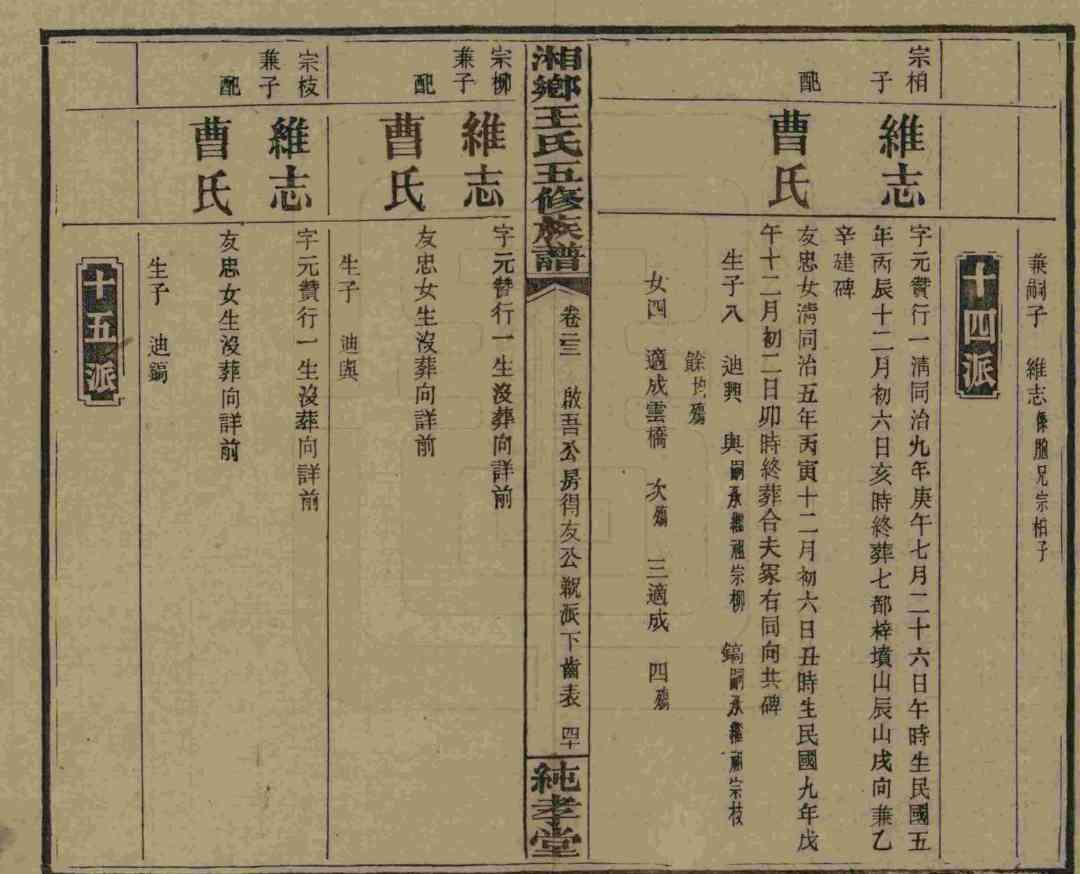 兼嗣子　維志係胞兄宗柏子
十四派
宗柏子　維志　字元贊行一淸同治九年庚午七月二十六日午時生民國五
年丙辰十二月初六日亥時終葬七都梓墳山辰山戌向兼乙
辛建碑
配　曹氏　友忠女淸同治五年丙寅十二月初六日丑時生民國九年戊
午十二月初二日卯時終葬合夫冢右同向共碑
生子八　迪興　與嗣承繼祖宗柳　鎬嗣承繼祖宗枝
餘均殤
女四　適成雲橋　次殤　三適成　四殤
湘鄉王氏五修族譜　卷三三　啟吾公房得友公派下齒表　四十　純孝堂
宗柳兼子　維志　字元贊行一生沒葬向詳前
配　曹氏　友忠女生沒葬向詳前
生子　迪與
宗枝兼子　維志　字元贊行一生沒葬向詳前
配　曹氏　友忠女生沒葬向詳前
生子　迪鎬
十五派